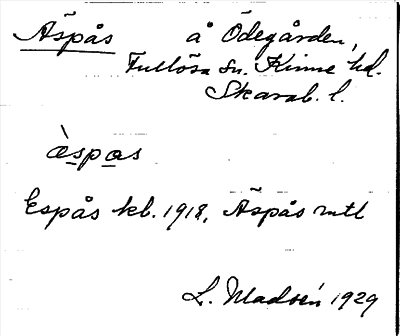 Äspås å Ödegården,
Fullösa sn. Kinne hd.
Skarab. l.
àspas
Espås kb. 1918, Äspås mtl
L. Madsén 1929